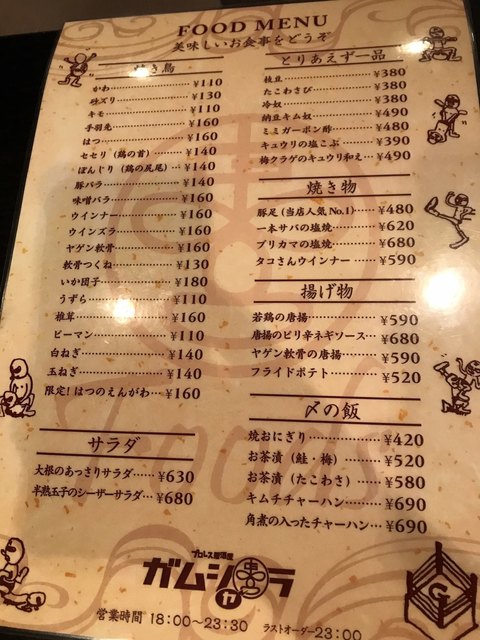 FOOD MENU
美味しいお食事をどうぞ
焼き鳥
かわ ¥110
砂ズリ ¥130
キモ ¥110
手羽先 ¥160
はつ ¥160
セセリ（鶏の首） ¥140
ぼんじり（鶏の尻尾） ¥140
豚バラ ¥140
味噌バラ ¥160
ウインナー ¥160
ウインズラ ¥160
ヤゲン軟骨 ¥160
軟骨つくね ¥130
いか団子 ¥180
うずら ¥110
椎茸 ¥160
ピーマン ¥110
白ねぎ ¥140
玉ねぎ ¥140
限定！はつのえんがわ ¥160
サラダ
大根のあっさりサラダ ¥630
半熟玉子のシーザーサラダ ¥680
とりあえず一品
枝豆 ¥380
たこわさび ¥380
冷奴 ¥380
納豆キム奴 ¥490
ミミガーポン酢 ¥480
キュウリの塩こぶ ¥390
梅クラゲのキュウリ和え ¥490
焼き物
豚足（当店人気No.1） ¥480
一本サバの塩焼 ¥620
ブリカマの塩焼 ¥680
タコさんウインナー ¥590
揚げ物
若鶏の唐揚 ¥590
唐揚のピリ辛ネギソース ¥680
ヤゲン軟骨の唐揚 ¥590
フライドポテト ¥520
〆の飯
焼おにぎり ¥420
お茶漬（鮭・梅） ¥520
お茶漬（たこわさ） ¥580
キムチチャーハン ¥690
角煮の入ったチャーハン ¥690
プロレス居酒屋
ガムシャラ
営業時間 18:00〜23:30 ラストオーダー23:00